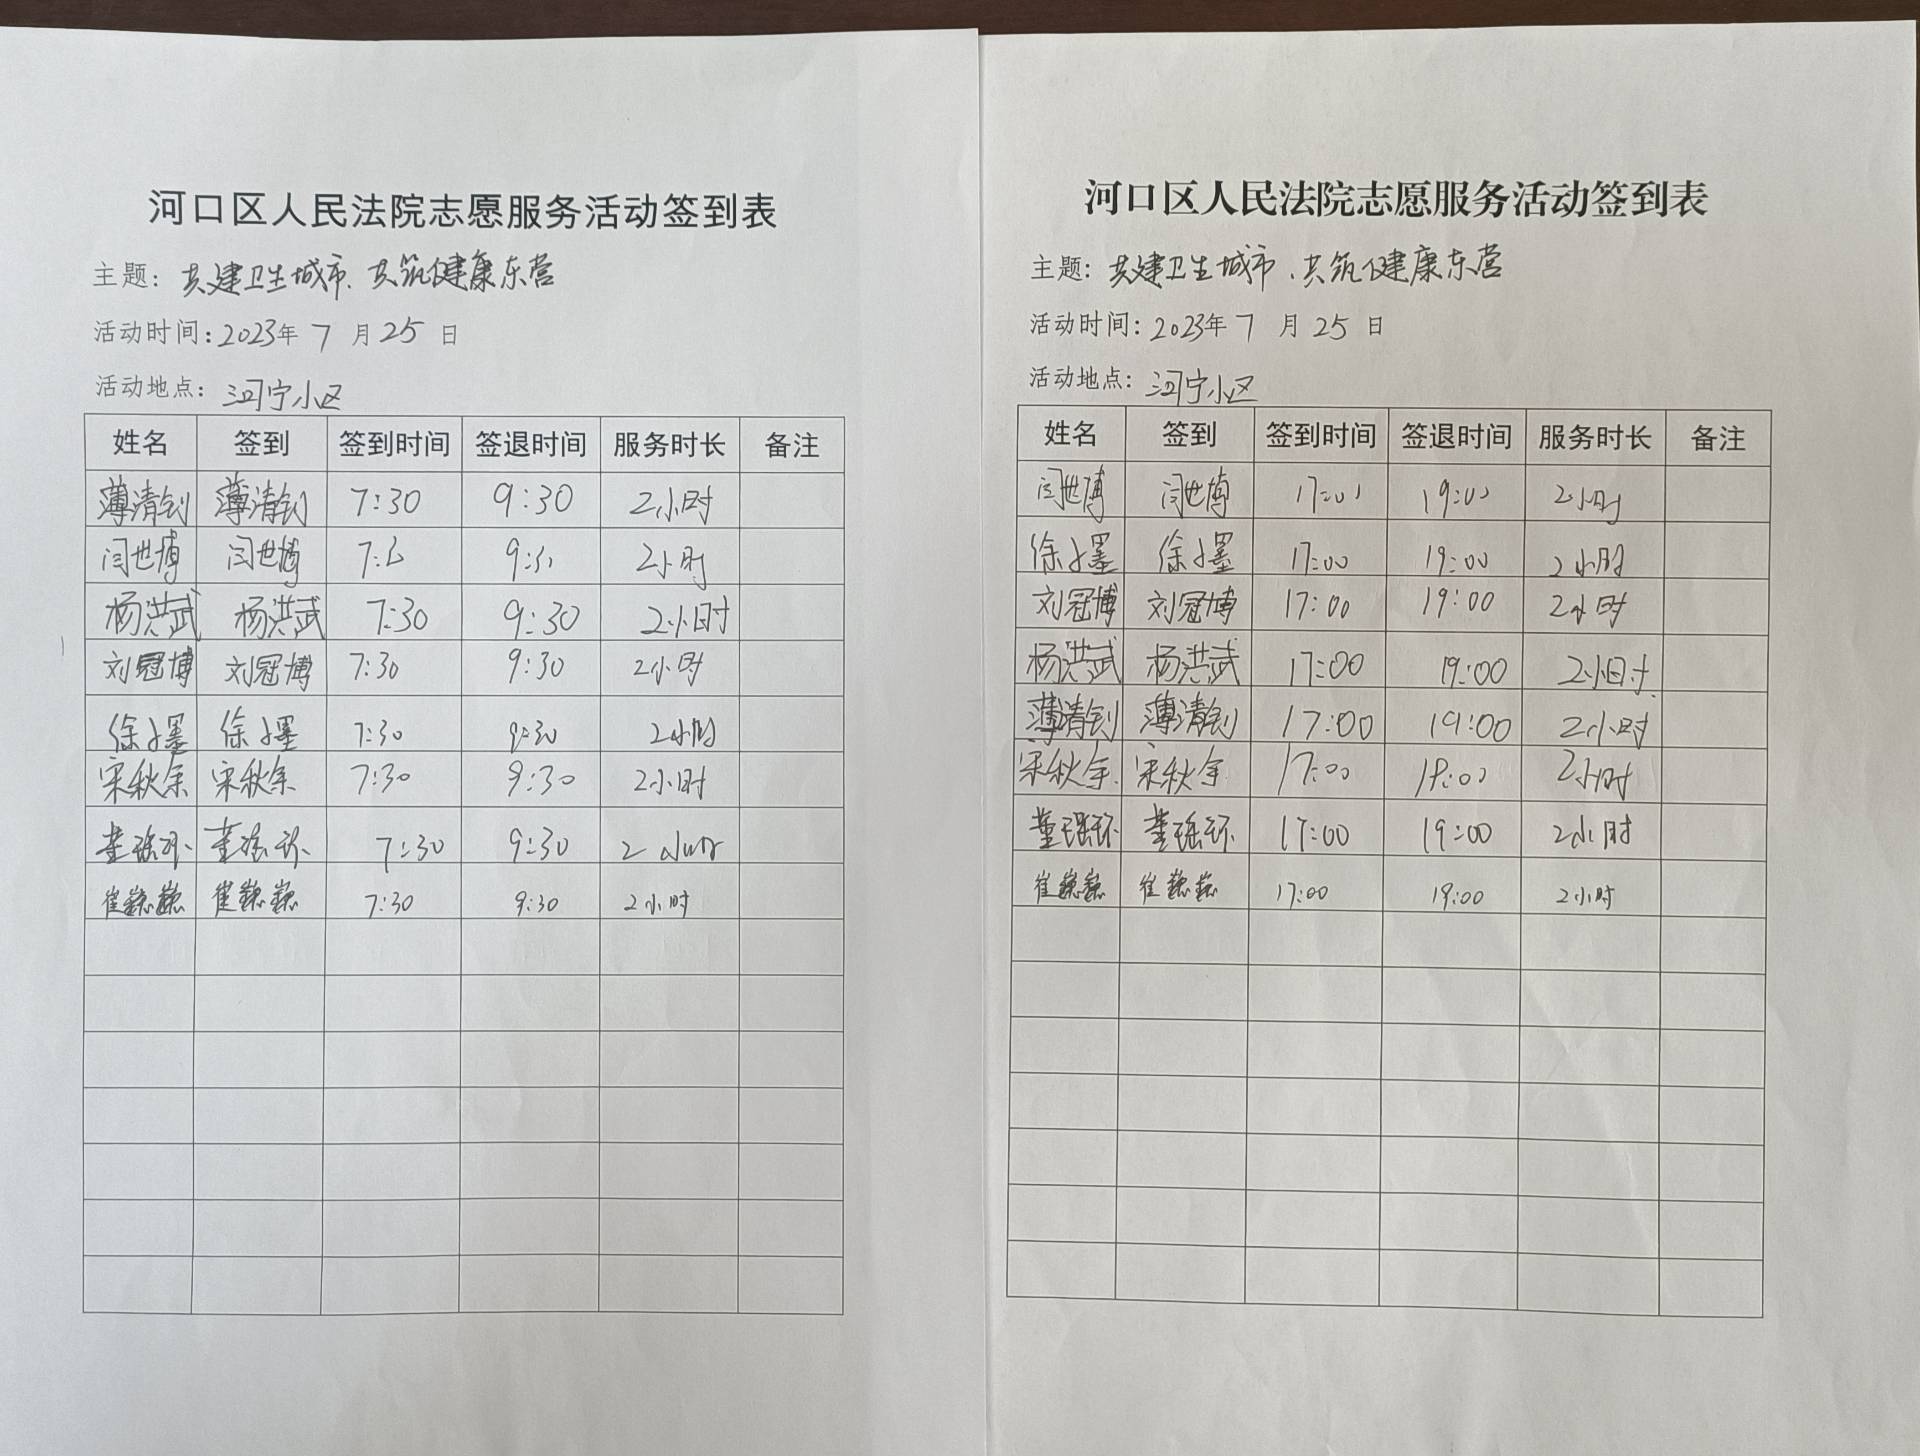 河口区人民法院志愿服务活动签到表
主题：共建卫生城市、共筑健康东营
活动时间：2023年 7 月 25 日
活动地点：河宁小区
姓名 签到 签到时间 签退时间 服务时长 备注
薄清钊 薄清钊 7:30 9:30 2小时
闫世博 闫世博 2小时
杨洪武 杨洪武 7:30 9:30 2小时
刘冠博 刘冠博 7:30 9:30 2小时
徐子墨 徐子墨 7:30 9:30 2小时
宋秋余 宋秋余 7:30 9:30 2小时
董瑶环 董瑶环 7:30 9:30 2小时
崔巍巍 崔巍巍 7:30 9:30 2小时
河口区人民法院志愿服务活动签到表
主题：共建卫生城市、共筑健康东营
活动时间：2023年 7 月 25 日
活动地点：河宁小区
姓名 签到 签到时间 签退时间 服务时长 备注
闫世博 闫世博 17:00 19:00 2小时
徐子墨 徐子墨 17:00 19:00 2小时
刘冠博 刘冠博 17:00 19:00 2小时
杨洪武 杨洪武 17:00 19:00 2小时
薄清钊 薄清钊 17:00 19:00 2小时
宋秋余 宋秋余 17:00 19:00 2小时
董瑶环 董瑶环 17:00 19:00 2小时
崔巍巍 崔巍巍 17:00 19:00 2小时